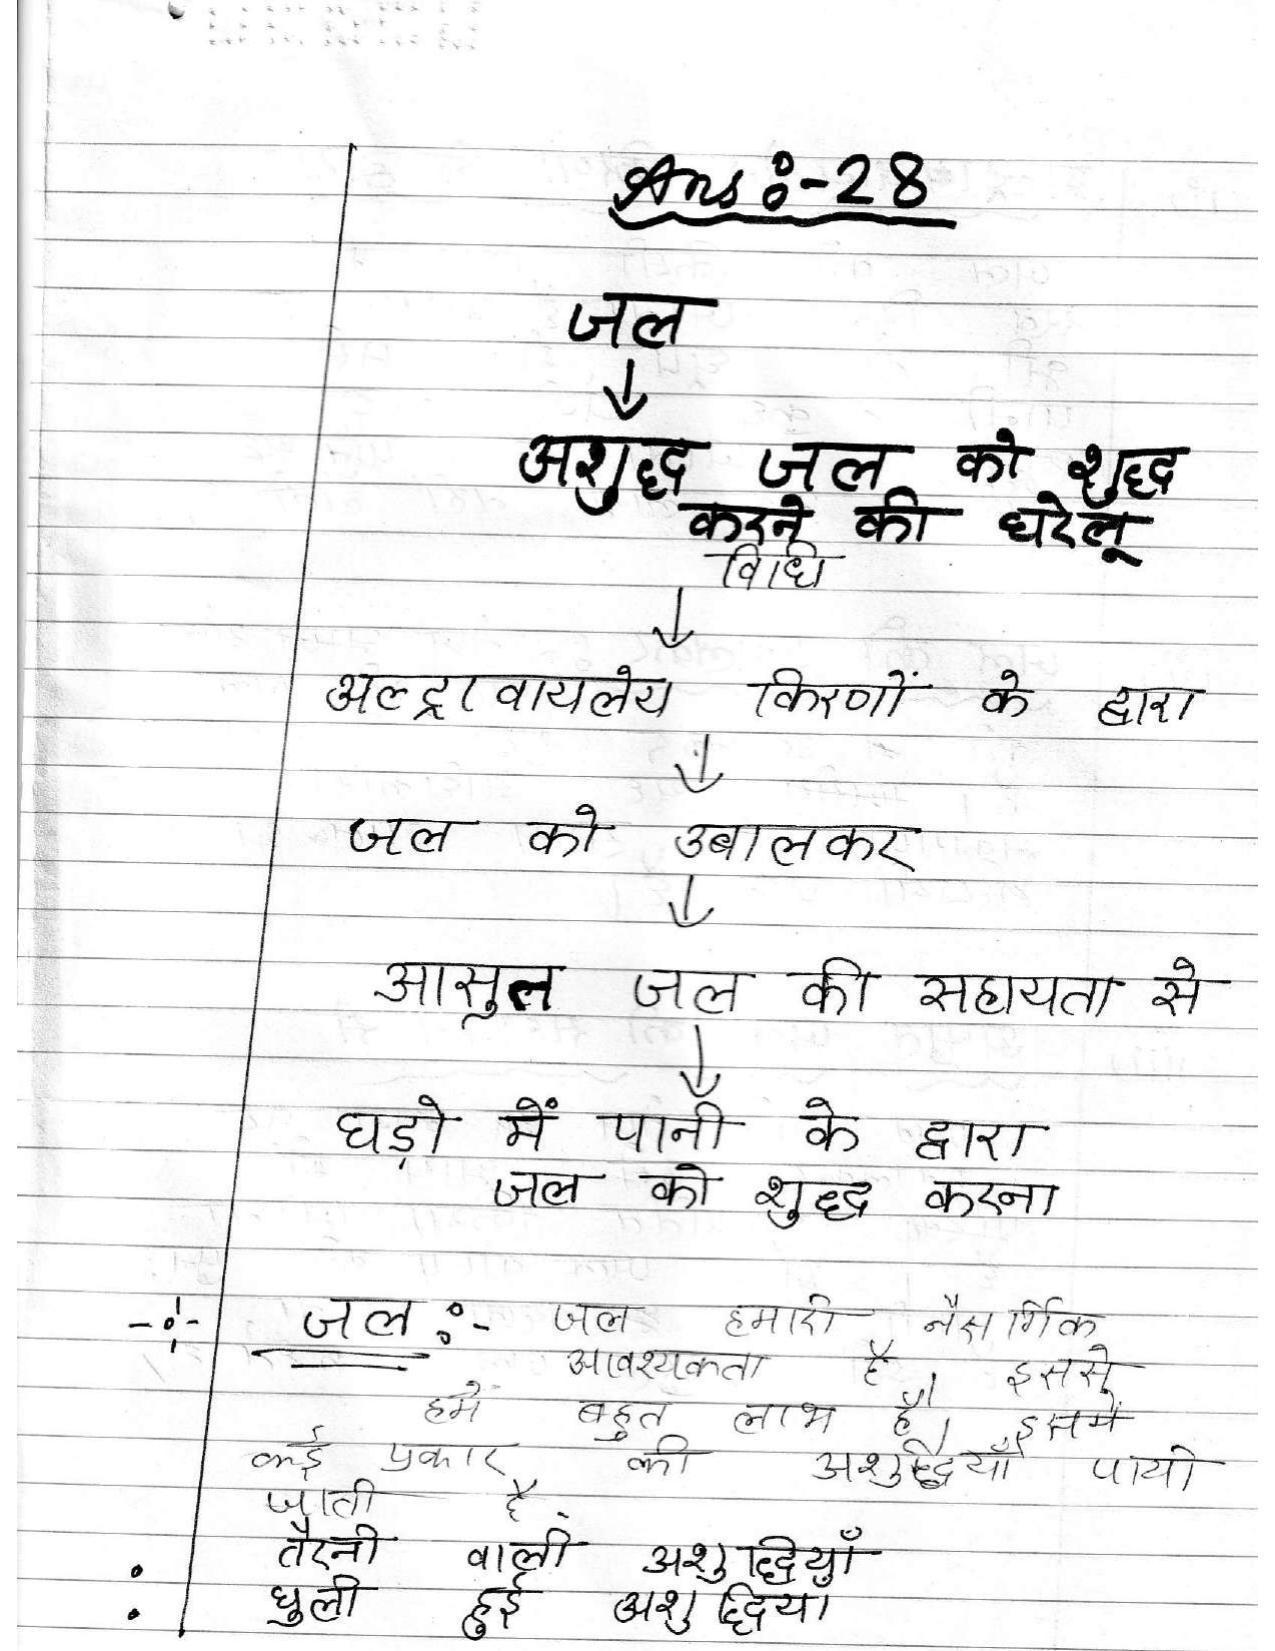 Ans :- 28
जल
↓
अशुद्ध जल को शुद्ध
करने की घरेलू
विधि
↓
अल्ट्रावायलेय किरणों के द्वारा
↓
जल को उबालकर
↓
आसुल जल की सहायता से
↓
घड़ो में पानी के द्वारा
जल को शुद्ध करना
जल :- जल हमारी नैसर्गिक
आवश्यकता है। इससे
हमें बहुत लाभ है। इसमें
कई प्रकार की अशुद्धियाँ पायी
जाती है.
• तैरनी वाली अशुद्धियाँ
• घुली हुई अशुद्धिया